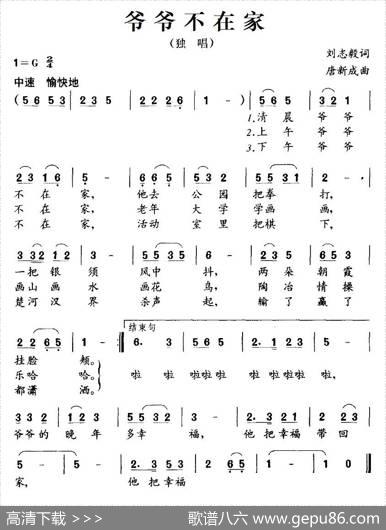 爷爷不在家
(独 唱)
1=G 2/4
刘志毅词
唐新成曲
中速 愉快地
(5 6 5 3 | 2 3 5 | 2 2 2 6 | 1 - ) | 5 6 5 | 3 2 1 |
1.清晨 爷爷
2.上午 爷爷
3.下午 爷爷
2 3 1 6 | 5 - | 1 2 3 | 5 5 | 2 3 5 | 2 - |
不在 家, 他去 公园 把拳 打,
不在 家, 老年 大学 学画 画,
不在 家, 活动 室里 把棋 下,
3 3 2 1 2 | 3 3 2 | 5 5 3 5 | 6 - | 5 6 5 | 3 2 1 |
一把银须 风中 抖, 两朵 朝霞
画山画水 画花 鸟, 陶冶 情操
楚河汉界 杀声 起, 输了 赢了
结束句
2 2 6 5 | 1 - :| 6. 3 | 5 - | 2.3 2 1 | 5 - |
挂脸 颊。
乐哈 哈。 啦 啦 啦 啦啦啦啦 啦
都潇 洒。
3 3 2 | 1 2 3 | 5 5 3 2 | 1 - | 2. 3 2 1 | 6 2 |
爷爷的 晚年 多幸 福, 他 把幸福 带回
5 - | 5 - | 2. 3 2 1 | 5 - | 1 - | 1 0 ‖
家, 他 把幸福
高清下载 >>>
歌谱八六 www.gepu86.com